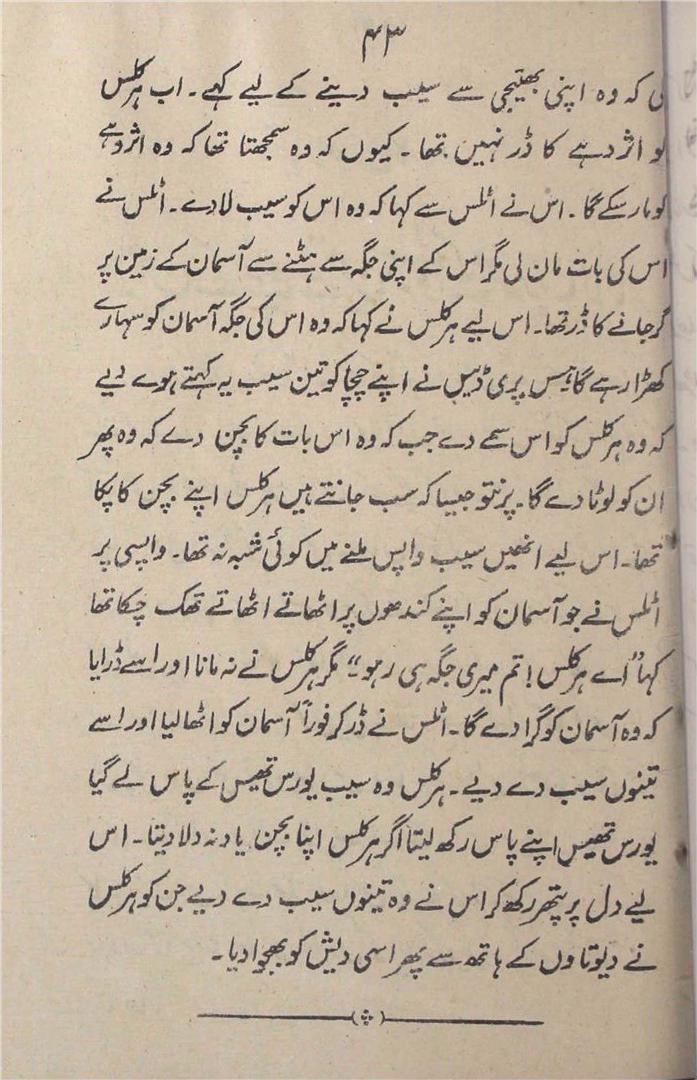 ۴۳
کہ وہ اپنی بھتیجی سے سیب دینے کے لیے کہے۔ اب ہرکلس
کو اژدہے کا ڈر نہیں تھا۔ کیوں کہ وہ سمجھتا تھا کہ وہ اژدہے
کو مار سکے گا۔ اس نے اٹلس سے کہا کہ وہ اس کو سیب لا دے۔ اٹلس نے
اس کی بات مان لی مگر اس کے اپنی جگہ سے ہٹنے سے آسمان کے زمین پر
گر جانے کا ڈر تھا۔ اس لیے ہرکلس نے کہا کہ وہ اس کی جگہ آسمان کو سہارے
کھڑا رہے گا۔ ہس پری ڈیس نے اپنے چچا کو تین سیب یہ کہتے ہوے دیے
کہ وہ ہرکلس کو اس سمے دے جب کہ وہ اس بات کا بچن دے کہ وہ پھر
ان کو لوٹا دے گا۔ پرنتو جیسا کہ سب جانتے ہیں ہرکلس اپنے بچن کا پکا
تھا۔ اس لیے انھیں سیب واپس ملنے میں کوئی شبہ نہ تھا۔ واپسی پر
اٹلس نے جو آسمان کو اپنے کندھوں پر اٹھاتے اٹھاتے تھک چکا تھا
کہا "اے ہرکلس! تم میری جگہ ہی رہو"۔ مگر ہرکلس نے نہ مانا اور اسے ڈرایا
کہ وہ آسمان کو گرا دے گا۔ اٹلس نے ڈر کر فوراً آسمان کو اٹھا لیا اور اسے
تینوں سیب دے دیے۔ ہرکلس وہ سیب یورس تھیس کے پاس لے گیا
یورس تھیس اپنے پاس رکھ لیتا اگر ہرکلس اپنا بچن یاد نہ دلا دیتا۔ اس
لیے دل پر پتھر رکھ کر اس نے وہ تینوں سیب دے دیے جن کو ہرکلس
نے دیوتاوں کے ہاتھ سے پھر اسی دیش کو بھجوا دیا۔